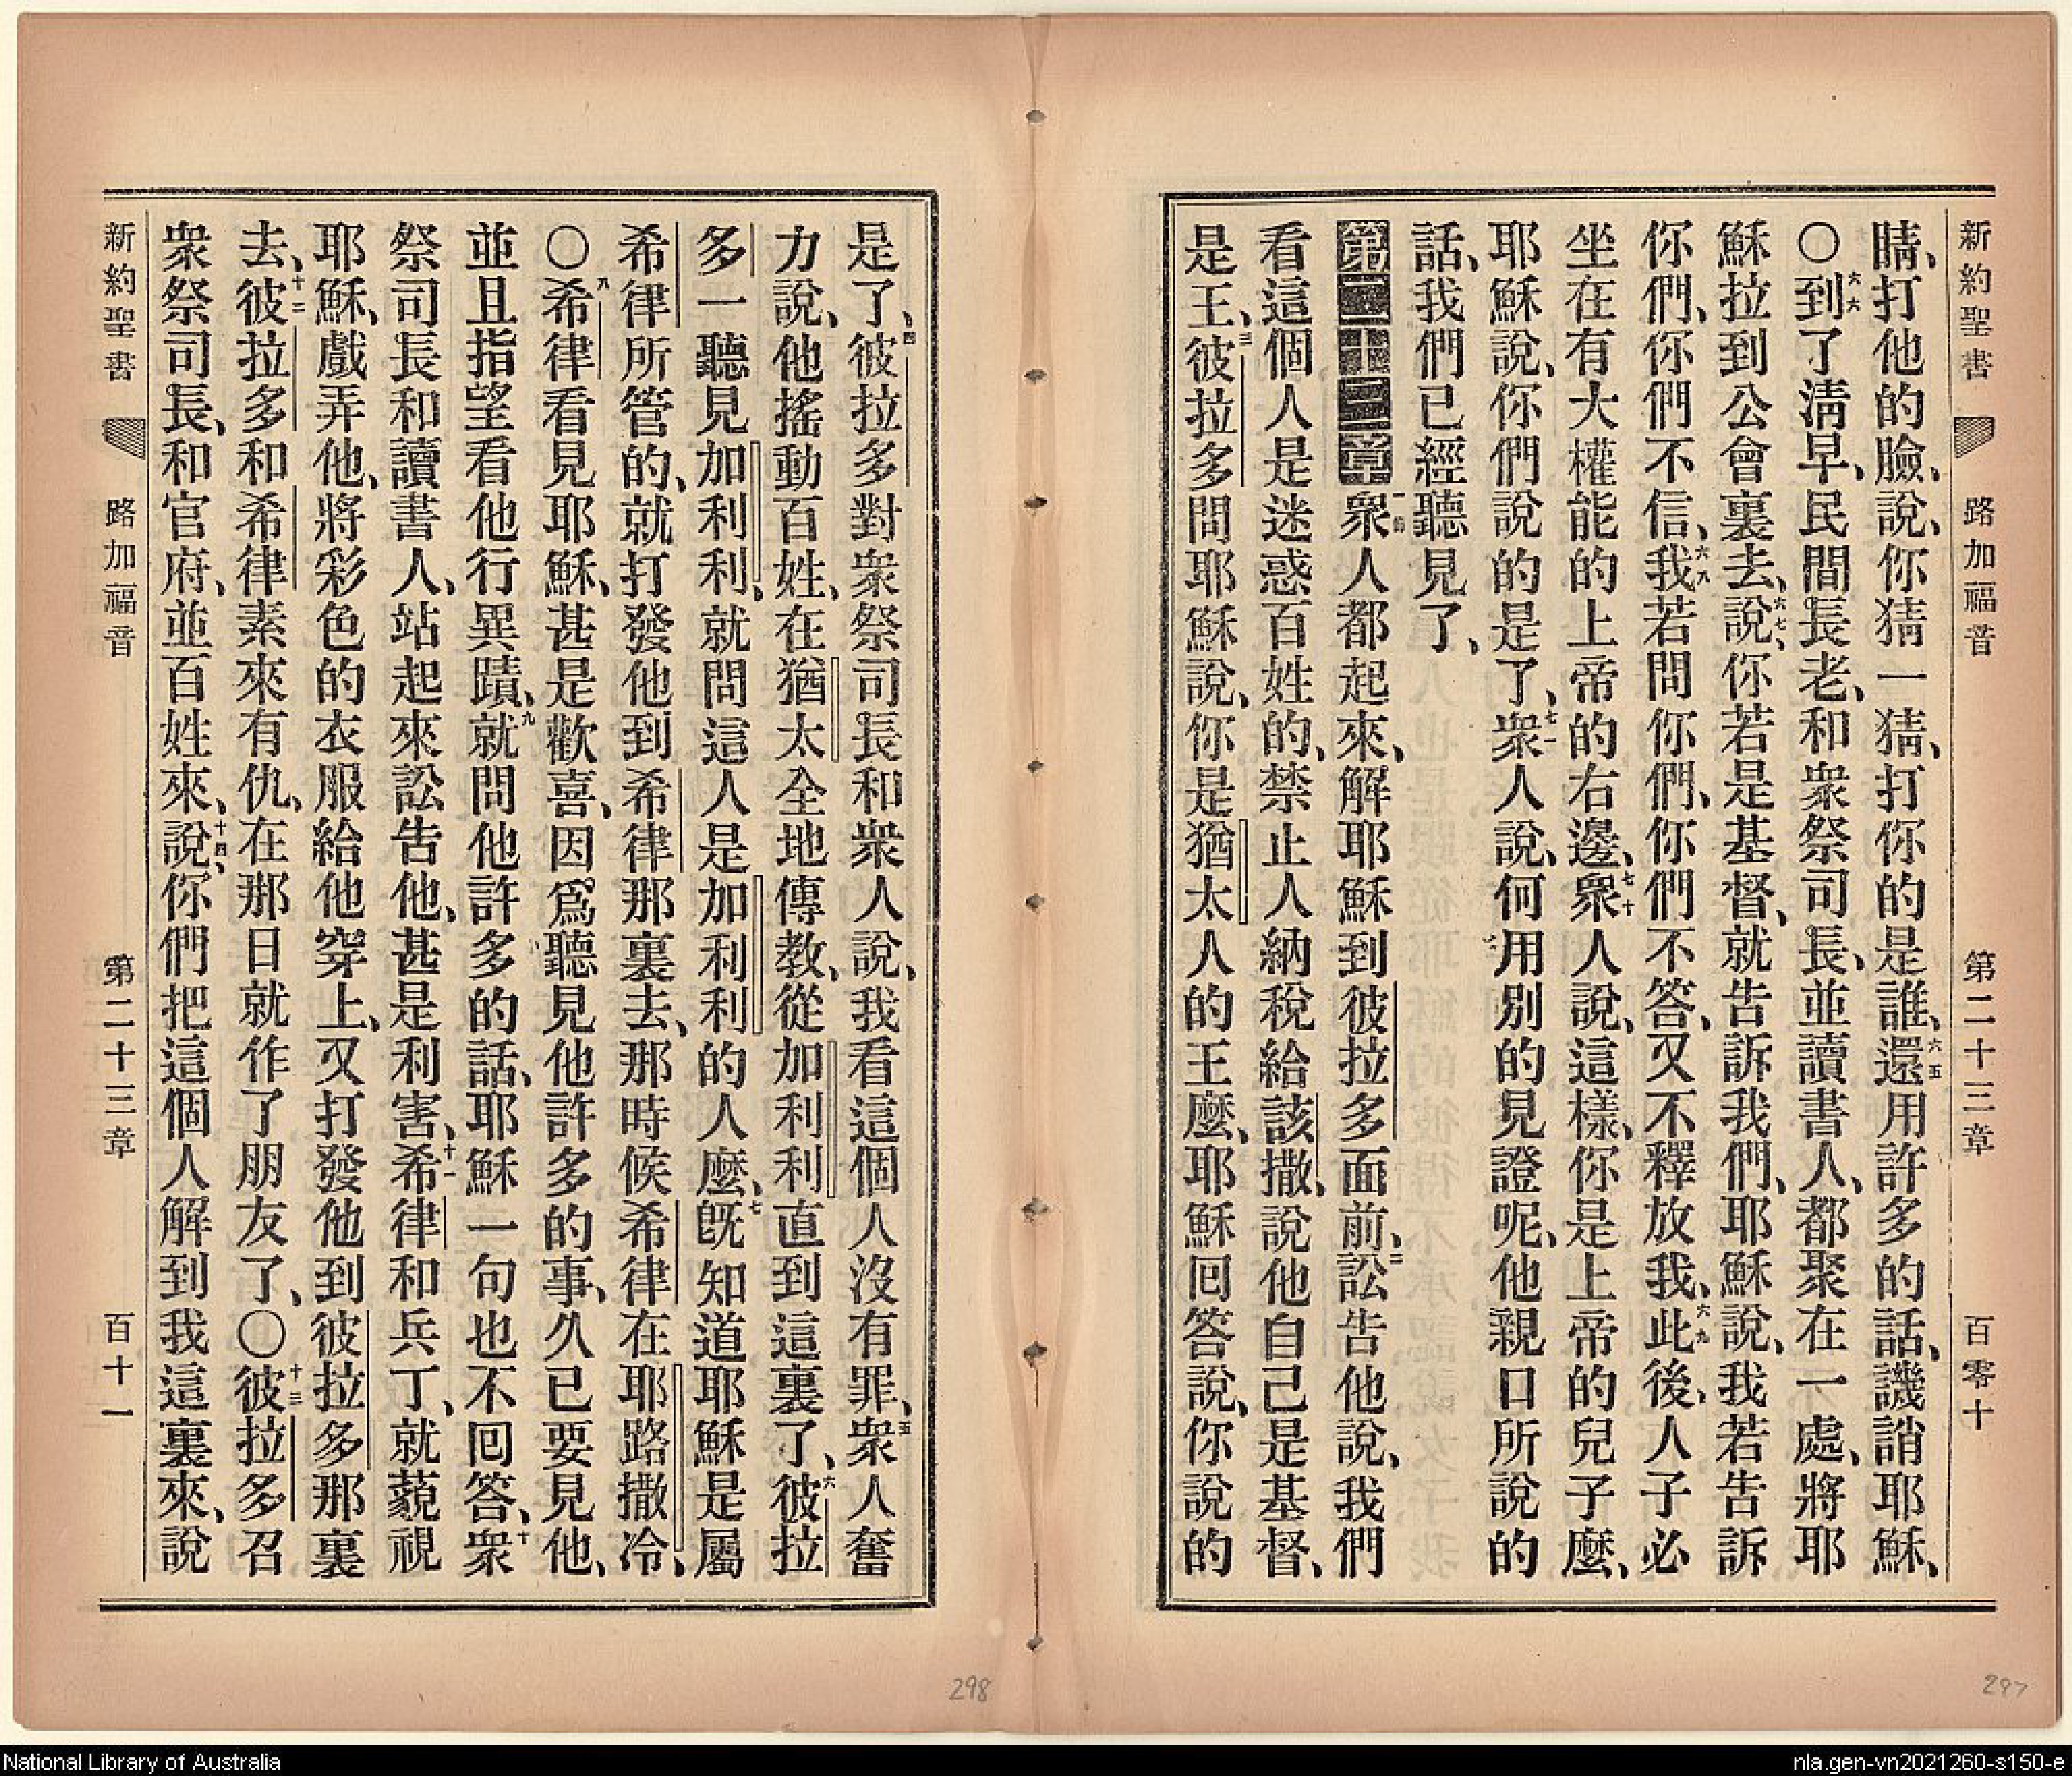 新約聖書 路加福音 第二十三章 百零十
睛、打他的臉、說、你猜一猜、打你的是誰、六五還用許多的話、譏誚耶穌、
〇六六到了淸早、民間長老、和衆祭司長、並讀書人、都聚在一處、將耶
穌拉到公會裏去、六七說、你若是基督、就告訴我們、耶穌說、我若告訴
你們、你們不信、六八我若問你們、你們不答、又不釋放我、六九此後、人子必
坐在有大權能的上帝的右邊、七十衆人說、這樣、你是上帝的兒子麽、
耶穌說、你們說的是了、七一衆人說、何用別的見證呢、他親口所說的
話、我們已經聽見了、
第二十三章 一節衆人都起來、解耶穌到彼拉多面前、二訟告他說、我們
看這個人是迷惑百姓的、禁止人納稅給該撒、說他自己是基督、
是王、三彼拉多問耶穌說、你是猶太人的王麽、耶穌囘答說、你說的
是了、四彼拉多對衆祭司長和衆人說、我看這個人沒有罪、五衆人奮
力說、他搖動百姓、在猶太全地傳教、從加利利直到這裏了、六彼拉
多一聽見加利利、就問這人是加利利的人麽、七旣知道耶穌是屬
希律所管的、就打發他到希律那裏去、那時候希律在耶路撒冷、
〇八希律看見耶穌、甚是歡喜、因爲聽見他許多的事、久已要見他、
並且指望看他行異蹟、九就問他許多的話、耶穌一句也不囘答、十衆
祭司長和讀書人、站起來訟告他、甚是利害、十一希律和兵丁、就藐視
耶穌、戲弄他、將彩色的衣服給他穿上、又打發他到彼拉多那裏
去、十二彼拉多和希律素來有仇、在那日就作了朋友了、〇十三彼拉多召
衆祭司長、和官府、並百姓來、十四說、你們把這個人解到我這裏來、說
新約聖書 路加福音 第二十三章 百十一
298
297
National Library of Australia
nla.gen-vn2021260-s150-e